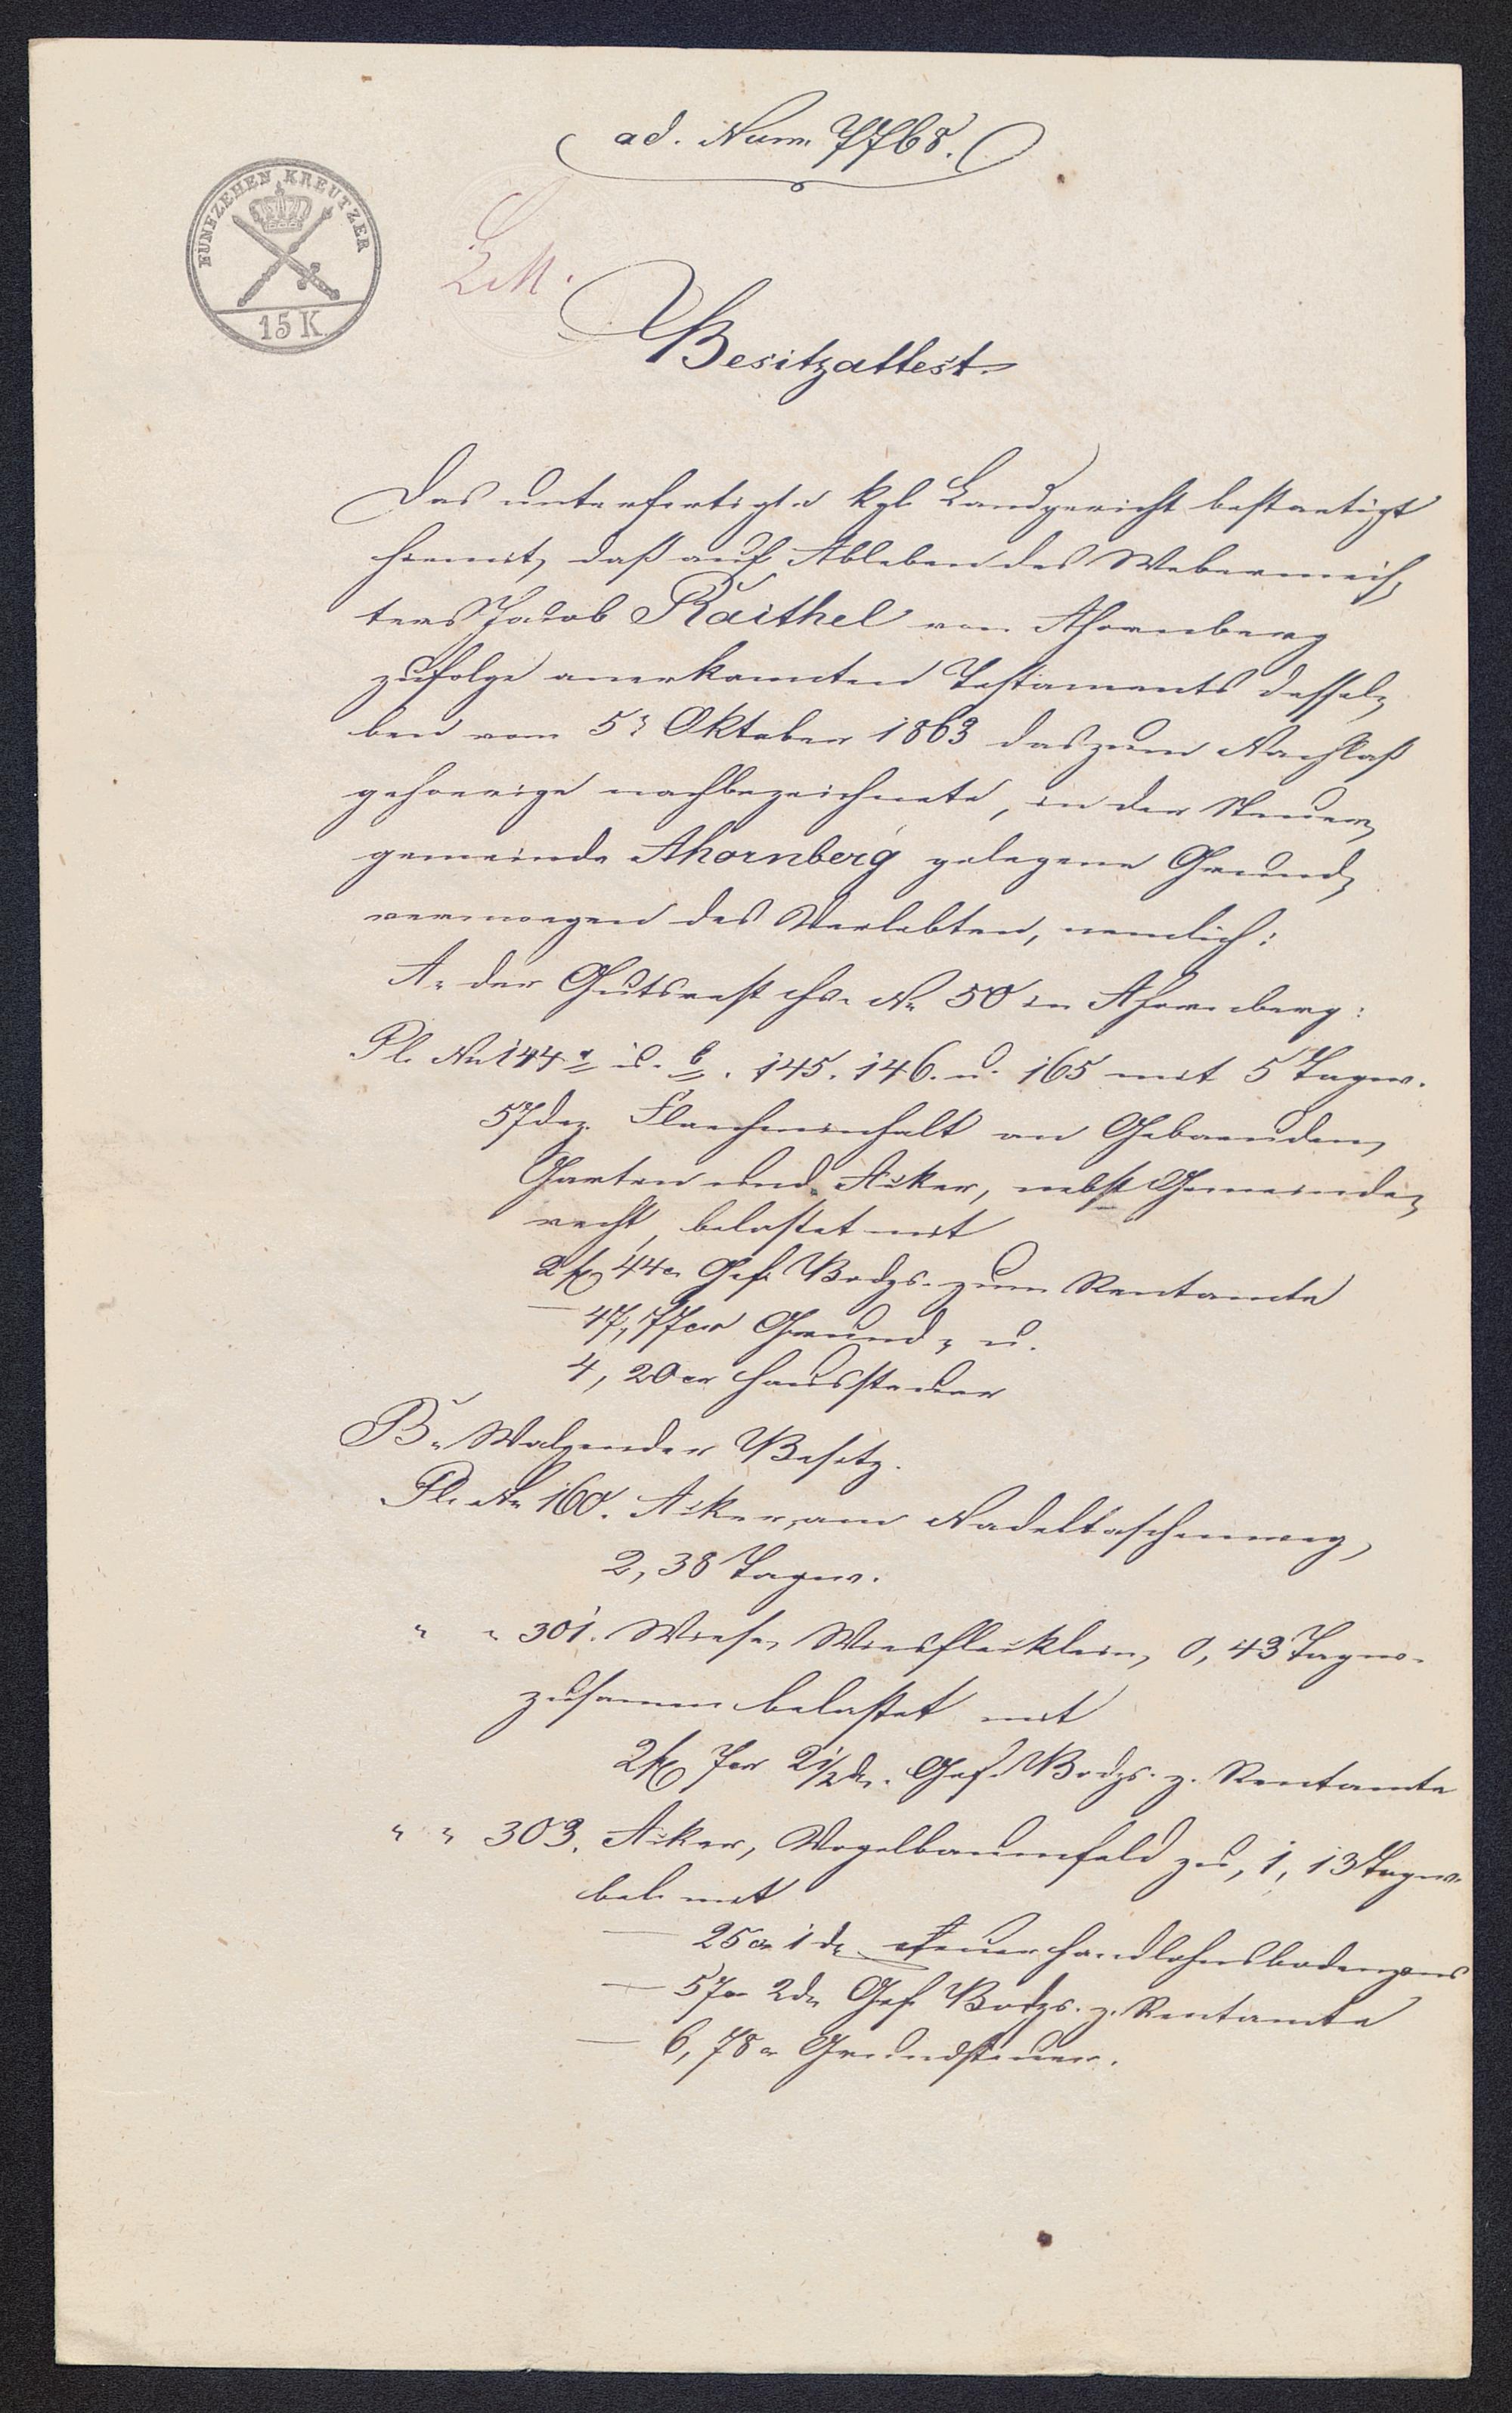 ad. Num 7768.
FUNFZEHEN KREUTZER
15 K.
Besitzattest.
Das unterfertigte kgl. Landgericht bestaetigt
hiemit, daß auf Ableben des Webermeis„
ters Jakob Raithel von Ahornberg
zufolge anerkannten Testaments dessel„
ben vom 5. Oktober 1863 das zum Nachlaß
gehoerige nachbezeichnete, in der Steuer„
gemeinde Ahornberg gelegene Grund„
vermoegen des Verlebten, nemlich:
A. der Gutsrest Hs. No 50 in Ahornberg:
Pl. No 144 a u. b. 145. 146. u. 165 mit 5 Tagw.
57 dez. Flaecheninhalt an Gebaeuden,
Garten und Aecker, nebst Gemeinde„
recht, belastet mit
2 fl 44 cr Gef. Bodzs. zum Rentamte
— 47,77 cr Grund„ u.
4,20 cr Haussteuer
B. Walzender Besitz.
Pl. No 160. Acker, am Nadeltaschenweg,
2,38 Tagw.
" " 301. Wiese, Wiesflecklein, 0,43 Tagw.
zusamen belastet mit
2 fl 7 cr 2 1/2 dl. Gef. Bodzs. z. Rentamte
" " 303. Acker, Vogelbaumfeld zu, 1,13 Tagw.
bel. mit
— 25 cr 1 dl Handlohnsbodenzins
— 57 cr 2 dl Gef. Bodzs. z. Rentamte
— 6,78 cr Grundsteuer.